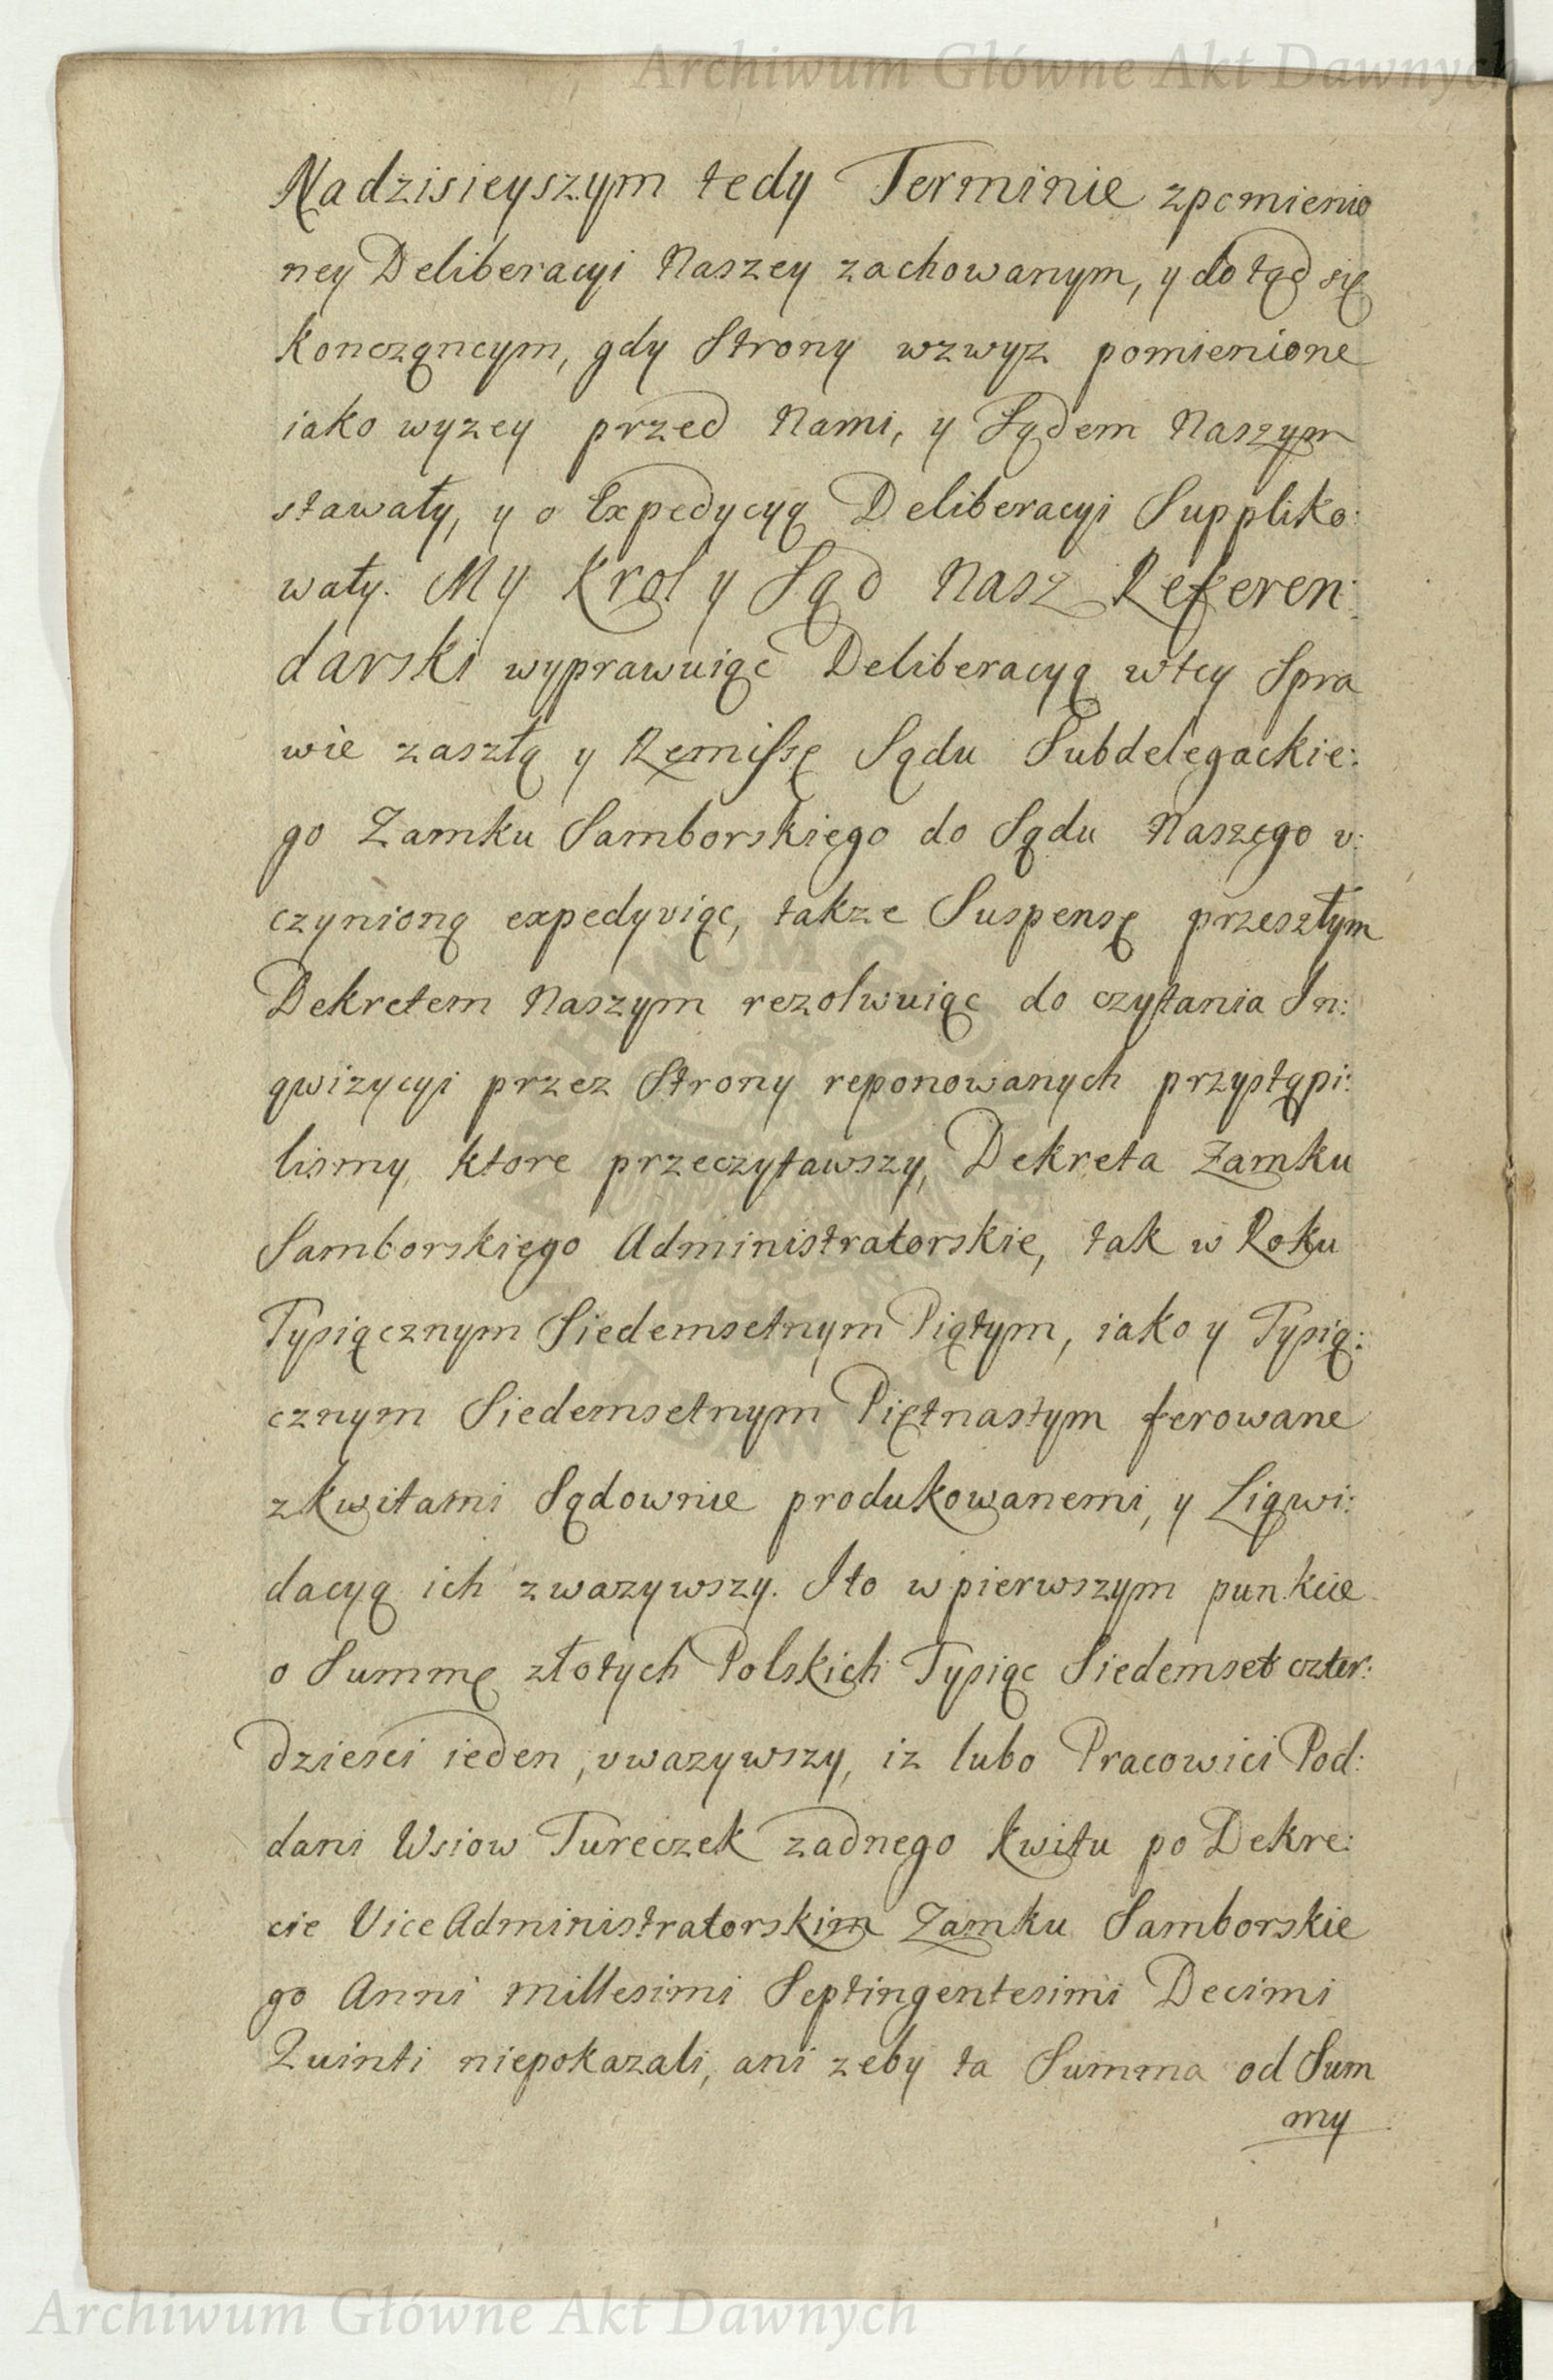 Archiwum Główne Akt Dawnych
Nadzisieyszym tedy Terminie zpomienio
ney Deliberacyi Naszey zachowanym, y dotąd się
koncząncym, gdy Strony wzwyz pomienione
iako wyzey przed Nami, y Sądem Naszym
stawały, y o Expedycyą Deliberacyi Suppliko:
wały. My Krol y Sąd Nasz Referen:
darski wyprawuiąc Deliberacyą wtey Spra
wie zaszłą y Remissę Sądu Subdelegackie:
go Zamku Samborskiego do Sądu Naszego v:
czynioną expedyviąc, takze Suspensę przeszłym
Dekretem Naszym rezolwuiąc do czytania In:
qwizycyi przez Strony reponowanych przystąpi:
lismy, ktore przeczytawszy, Dekreta Zamku
Samborskiego Administratorskie, tak w Roku
Tysiącznym Siedemsetnym Piątym, iako y Tysią:
cznym Siedemsetnym Piętnastym ferowane
zkwitami Sądownie produkowanemi, y Liqwi:
dacyą ich zwazywszy. Ito wpierwszym punkcie
o Summę złotych Polskich Tysiąc Siedemset czter:
dziesci ieden, vwazywszy, iz lubo Pracowici Pod:
dani Wsiow Tureczek zadnego kwitu po Dekre:
cie ViceAdministratorskim Zamku Samborskie
go Anni Millesimi Septingentesimi Decimi
Quinti niepokazali, ani zeby ta Summa od Sum
my
Archiwum Główne Akt Dawnych